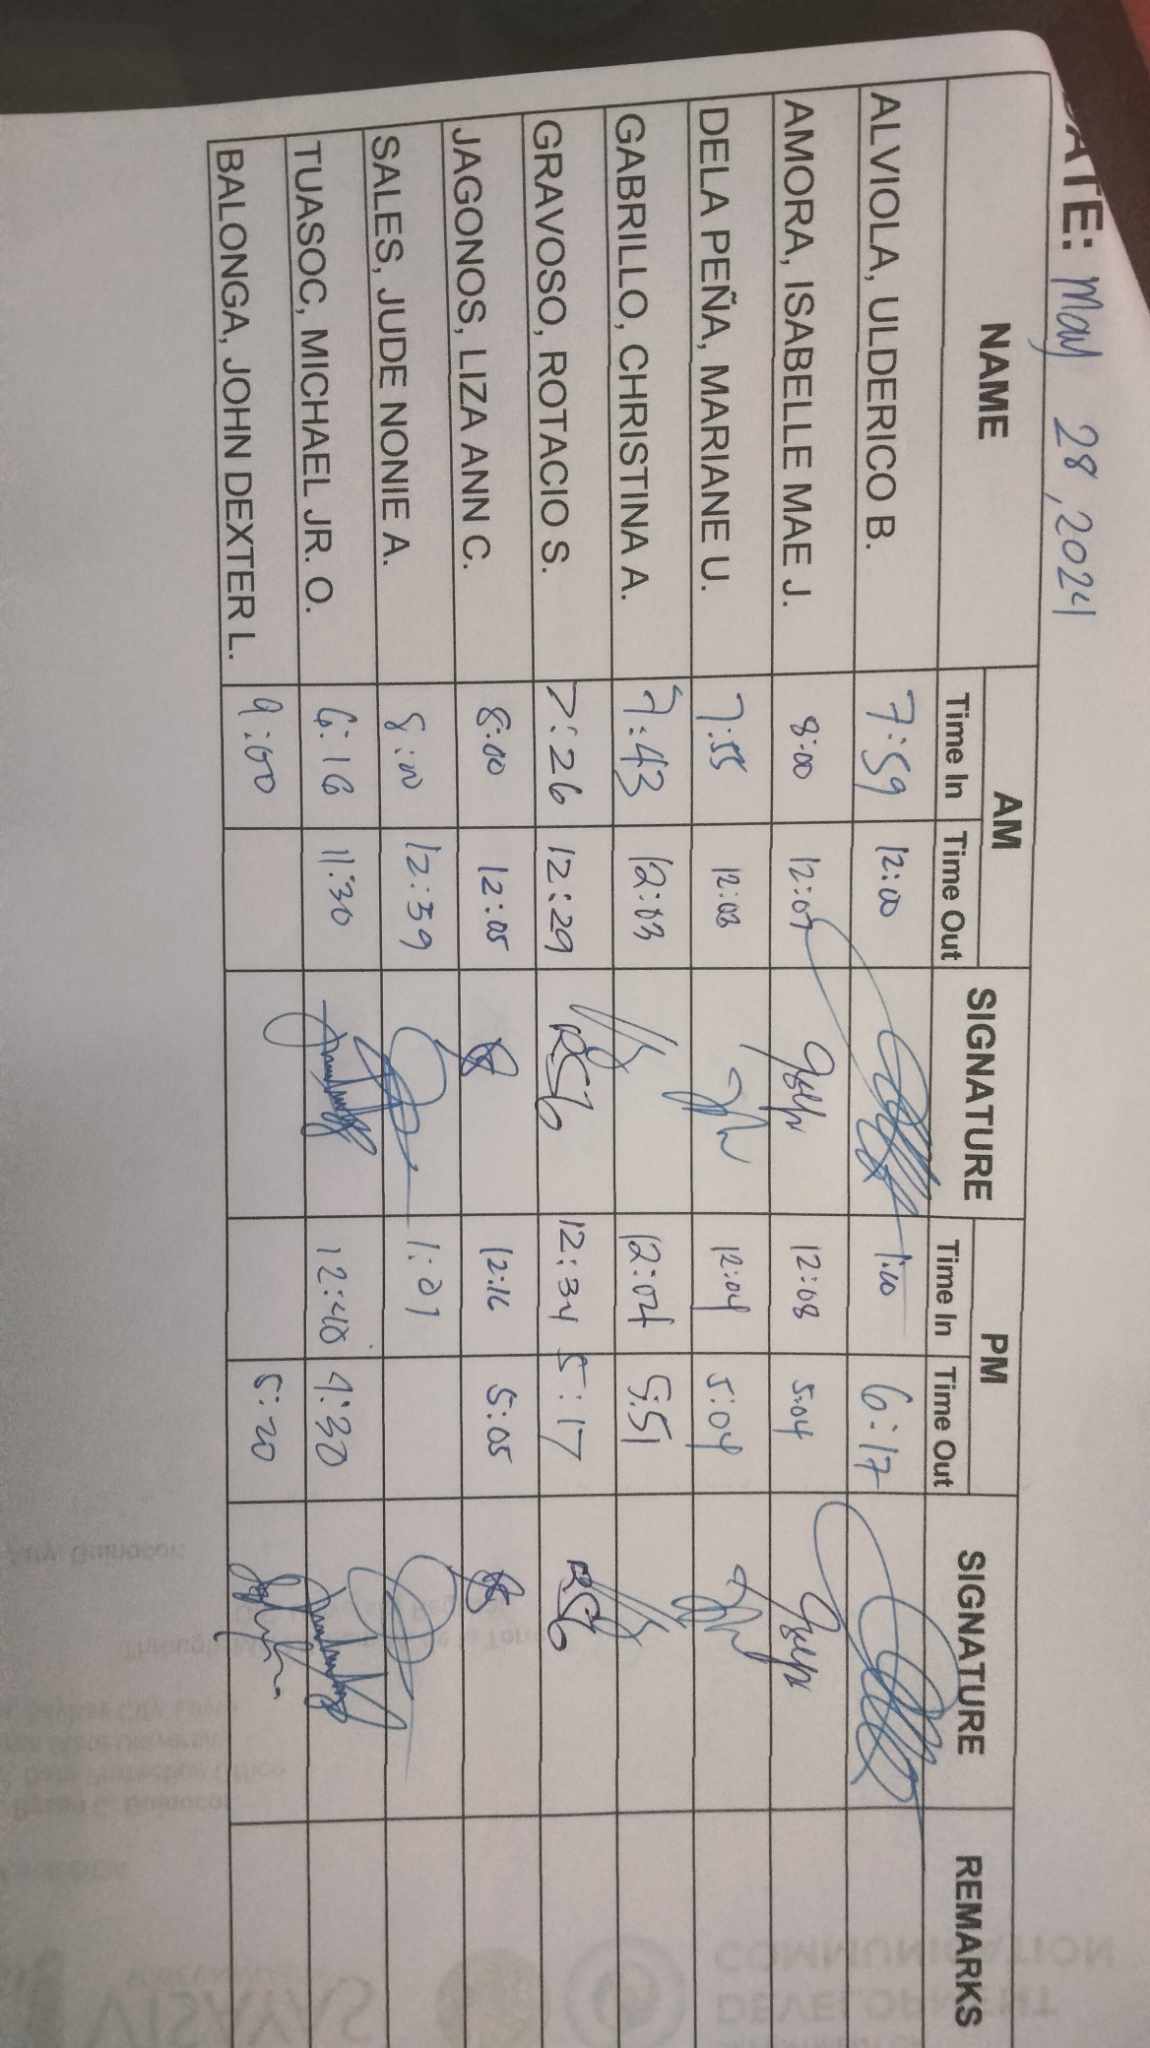 DATE: May 28, 2024
NAME AM SIGNATURE PM SIGNATURE REMARKS
Time In Time Out Time In Time Out
ALVIOLA, ULDERICO B. 7:59 12:00 1:00 6:17
AMORA, ISABELLE MAE J. 8:00 12:07 12:08 5:04
DELA PEÑA, MARIANE U. 7:55 12:03 12:04 5:04
GABRILLO, CHRISTINA A. 7:43 12:03 12:04 5:51
GRAVOSO, ROTACIO S. 7:26 12:29 RSG 12:34 5:17 RSG
JAGONOS, LIZA ANN C. 8:00 12:05 12:16 5:05
SALES, JUDE NONIE A. 8:00 12:59 1:01
TUASOC, MICHAEL JR. O. 6:16 11:30 12:40 4:30
BALONGA, JOHN DEXTER L. 9:00 5:20
COMMUNICATION
DEVELOPMENT
VISAYAS